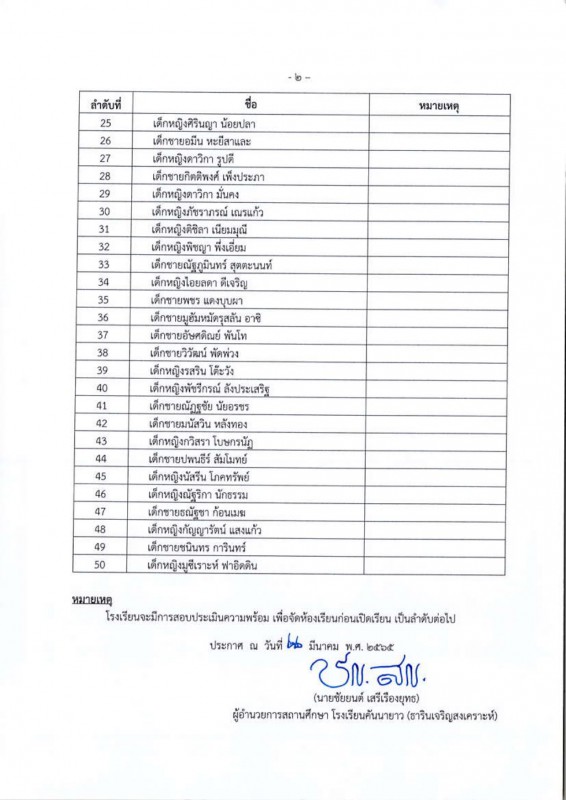 - ๒ –
ลำดับที่ ชื่อ หมายเหตุ
25 เด็กหญิงศิรินญา น้อยปลา
26 เด็กชายอมีน หะยีสาและ
27 เด็กหญิงดาวิกา รูปดี
28 เด็กชายกิตติพงศ์ เพ็งประภา
29 เด็กหญิงดาวิกา มั่นคง
30 เด็กหญิงภัชราภรณ์ เณรแก้ว
31 เด็กหญิงติชิลา เนียมมุณี
32 เด็กหญิงพิชญา พึ่งเอี่ยม
33 เด็กชายณัฐภูมินทร์ สุตตะนนท์
34 เด็กหญิงไอยลดา ดีเจริญ
35 เด็กชายพชร แดงบุบผา
36 เด็กชายมูฮัมหมัดรุสลัน อาซิ
37 เด็กชายอัษศดิณย์ พันโท
38 เด็กชายวิวัฒน์ พัดพ่วง
39 เด็กหญิงรสริน โต๊ะวัง
40 เด็กหญิงพัชรีกรณ์ ลังประเสริฐ
41 เด็กชายณัฏฐชัย นัยอรชร
42 เด็กชายมนัสวิน หลังทอง
43 เด็กหญิงกวิสรา โบษกรนัฏ
44 เด็กชายปพนธีร์ สัมโมทย์
45 เด็กหญิงนัสรีน โภคทรัพย์
46 เด็กหญิงณัฐริกา นักธรรม
47 เด็กชายธณัฐชา ก้อนเมฆ
48 เด็กหญิงกัญญารัตน์ แสงแก้ว
49 เด็กชายชนินทร การินทร์
50 เด็กหญิงมูซีเราะห์ ฟาอิดดิน
หมายเหตุ
โรงเรียนจะมีการสอบประเมินความพร้อม เพื่อจัดห้องเรียนก่อนเปิดเรียน เป็นลำดับต่อไป
ประกาศ ณ วันที่ มีนาคม พ.ศ. ๒๕๖๕
(นายชัยยนต์ เสรีเรืองยุทธ)
ผู้อำนวยการสถานศึกษา โรงเรียนคันนายาว (ธารินเจริญสงเคราะห์)